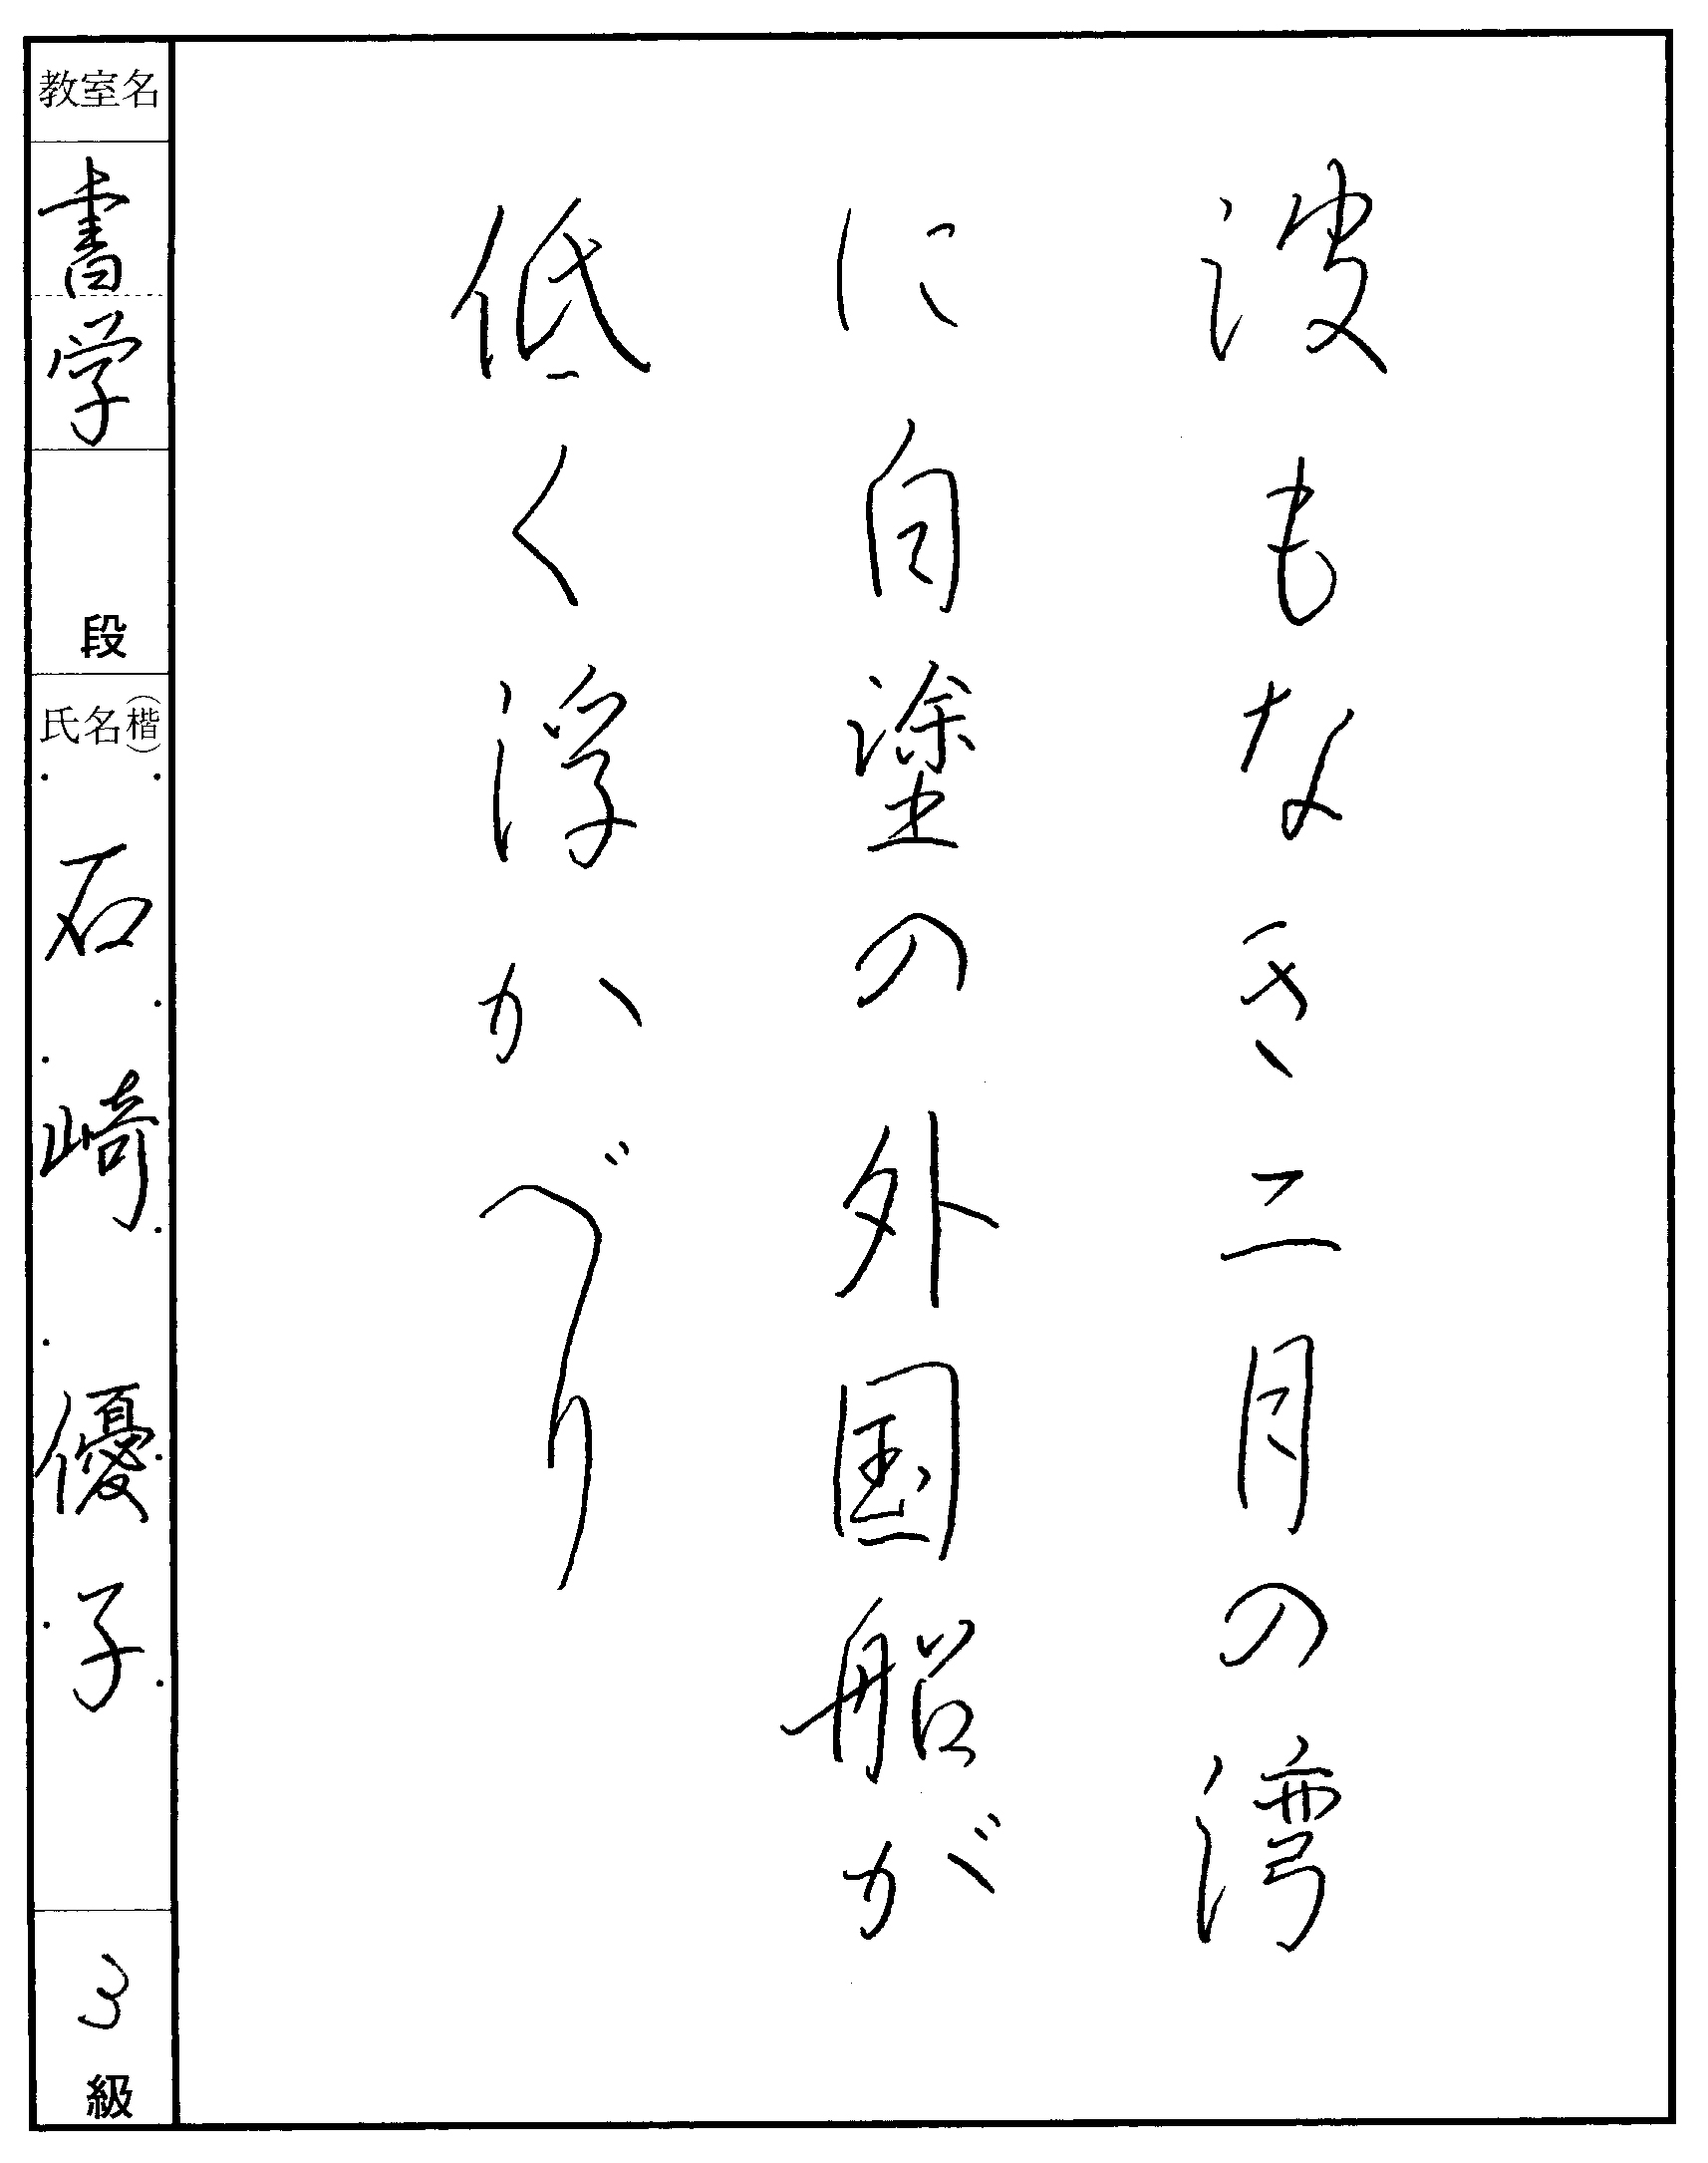 波もなき二月の湾
に白塗の外国船が
低く浮かべり
教室名
書学
段
氏名(楷)
石崎優子
3
級